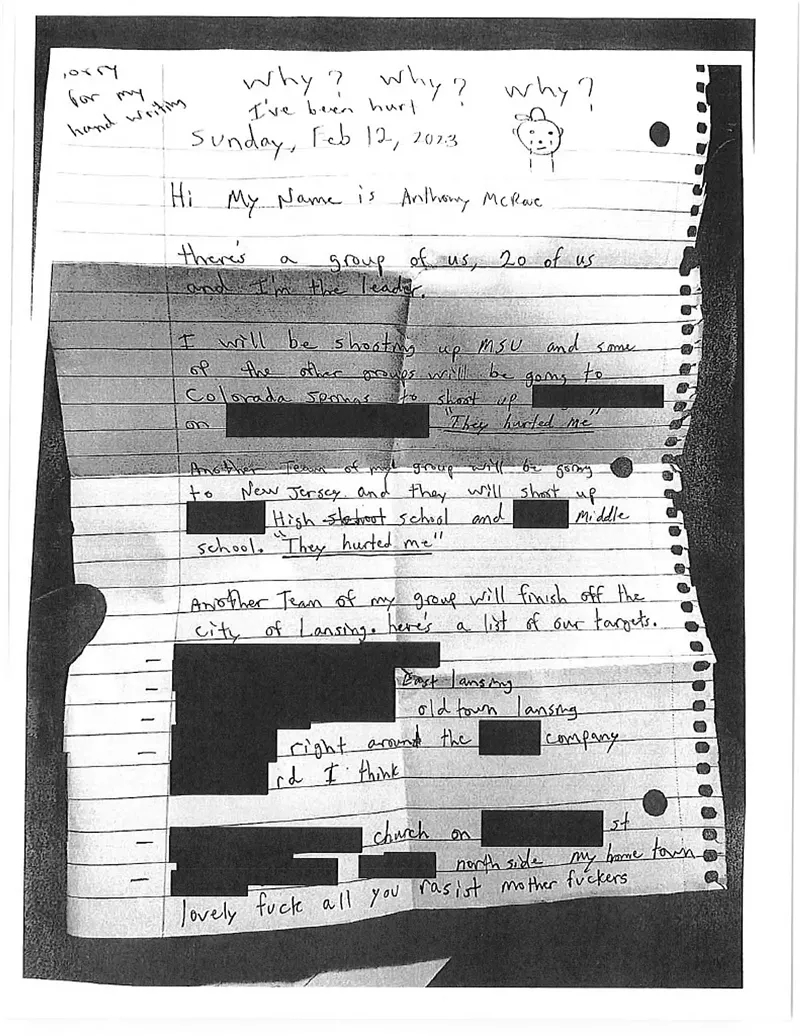 sorry
for my
hand writing
Why? Why? Why?
I've been hurt
Sunday, Feb 12, 2023
Hi My Name is Anthony McRae
there's a group of us, 20 of us
and I'm the leader.
I will be shooting up MSU and some
of the other groups will be going to
Colorada Springs to shoot up
on "They hurted me"
Another Team of my group will be going
to New Jersey and they will shoot up
High school and Middle
school. "They hurted me"
Another Team of my group will finish off the
city of Lansing. here's a list of our targets.
East lansing
old town lansing
right around the company
rd I think
church on st
north side my home town
lovely fuck all you rasist mother fuckers